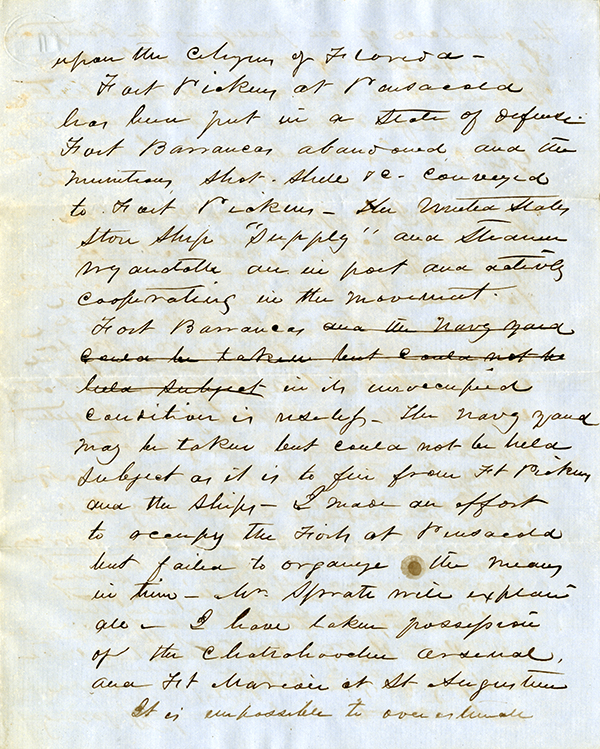 upon the citizens of Florida –
Fort Pickens at Pensacola
has been put in a state of defense.
Fort Barrancas abandoned and the
munitions shot. shell &c. conveyed
to Fort Pickens – The United States
Store Ship "Supply" and Steamer
Wyandotte are in port and actively
cooperating in the movement.
Fort Barrancas and the Navy yard
could be taken but could not be
held subject in its unoccupied
condition is useless – The Navy yard
may be taken but could not be held
subject as it is to fire from Ft Pickens
and the ships – I made an effort
to occupy the Forts at Pensacola
but failed to organize the means
in time – Mr. Spratt will explain
all – I have taken possession
of the Chattahoochee arsenal,
and Ft Marion at St Augustine
It is impossible to overestimate